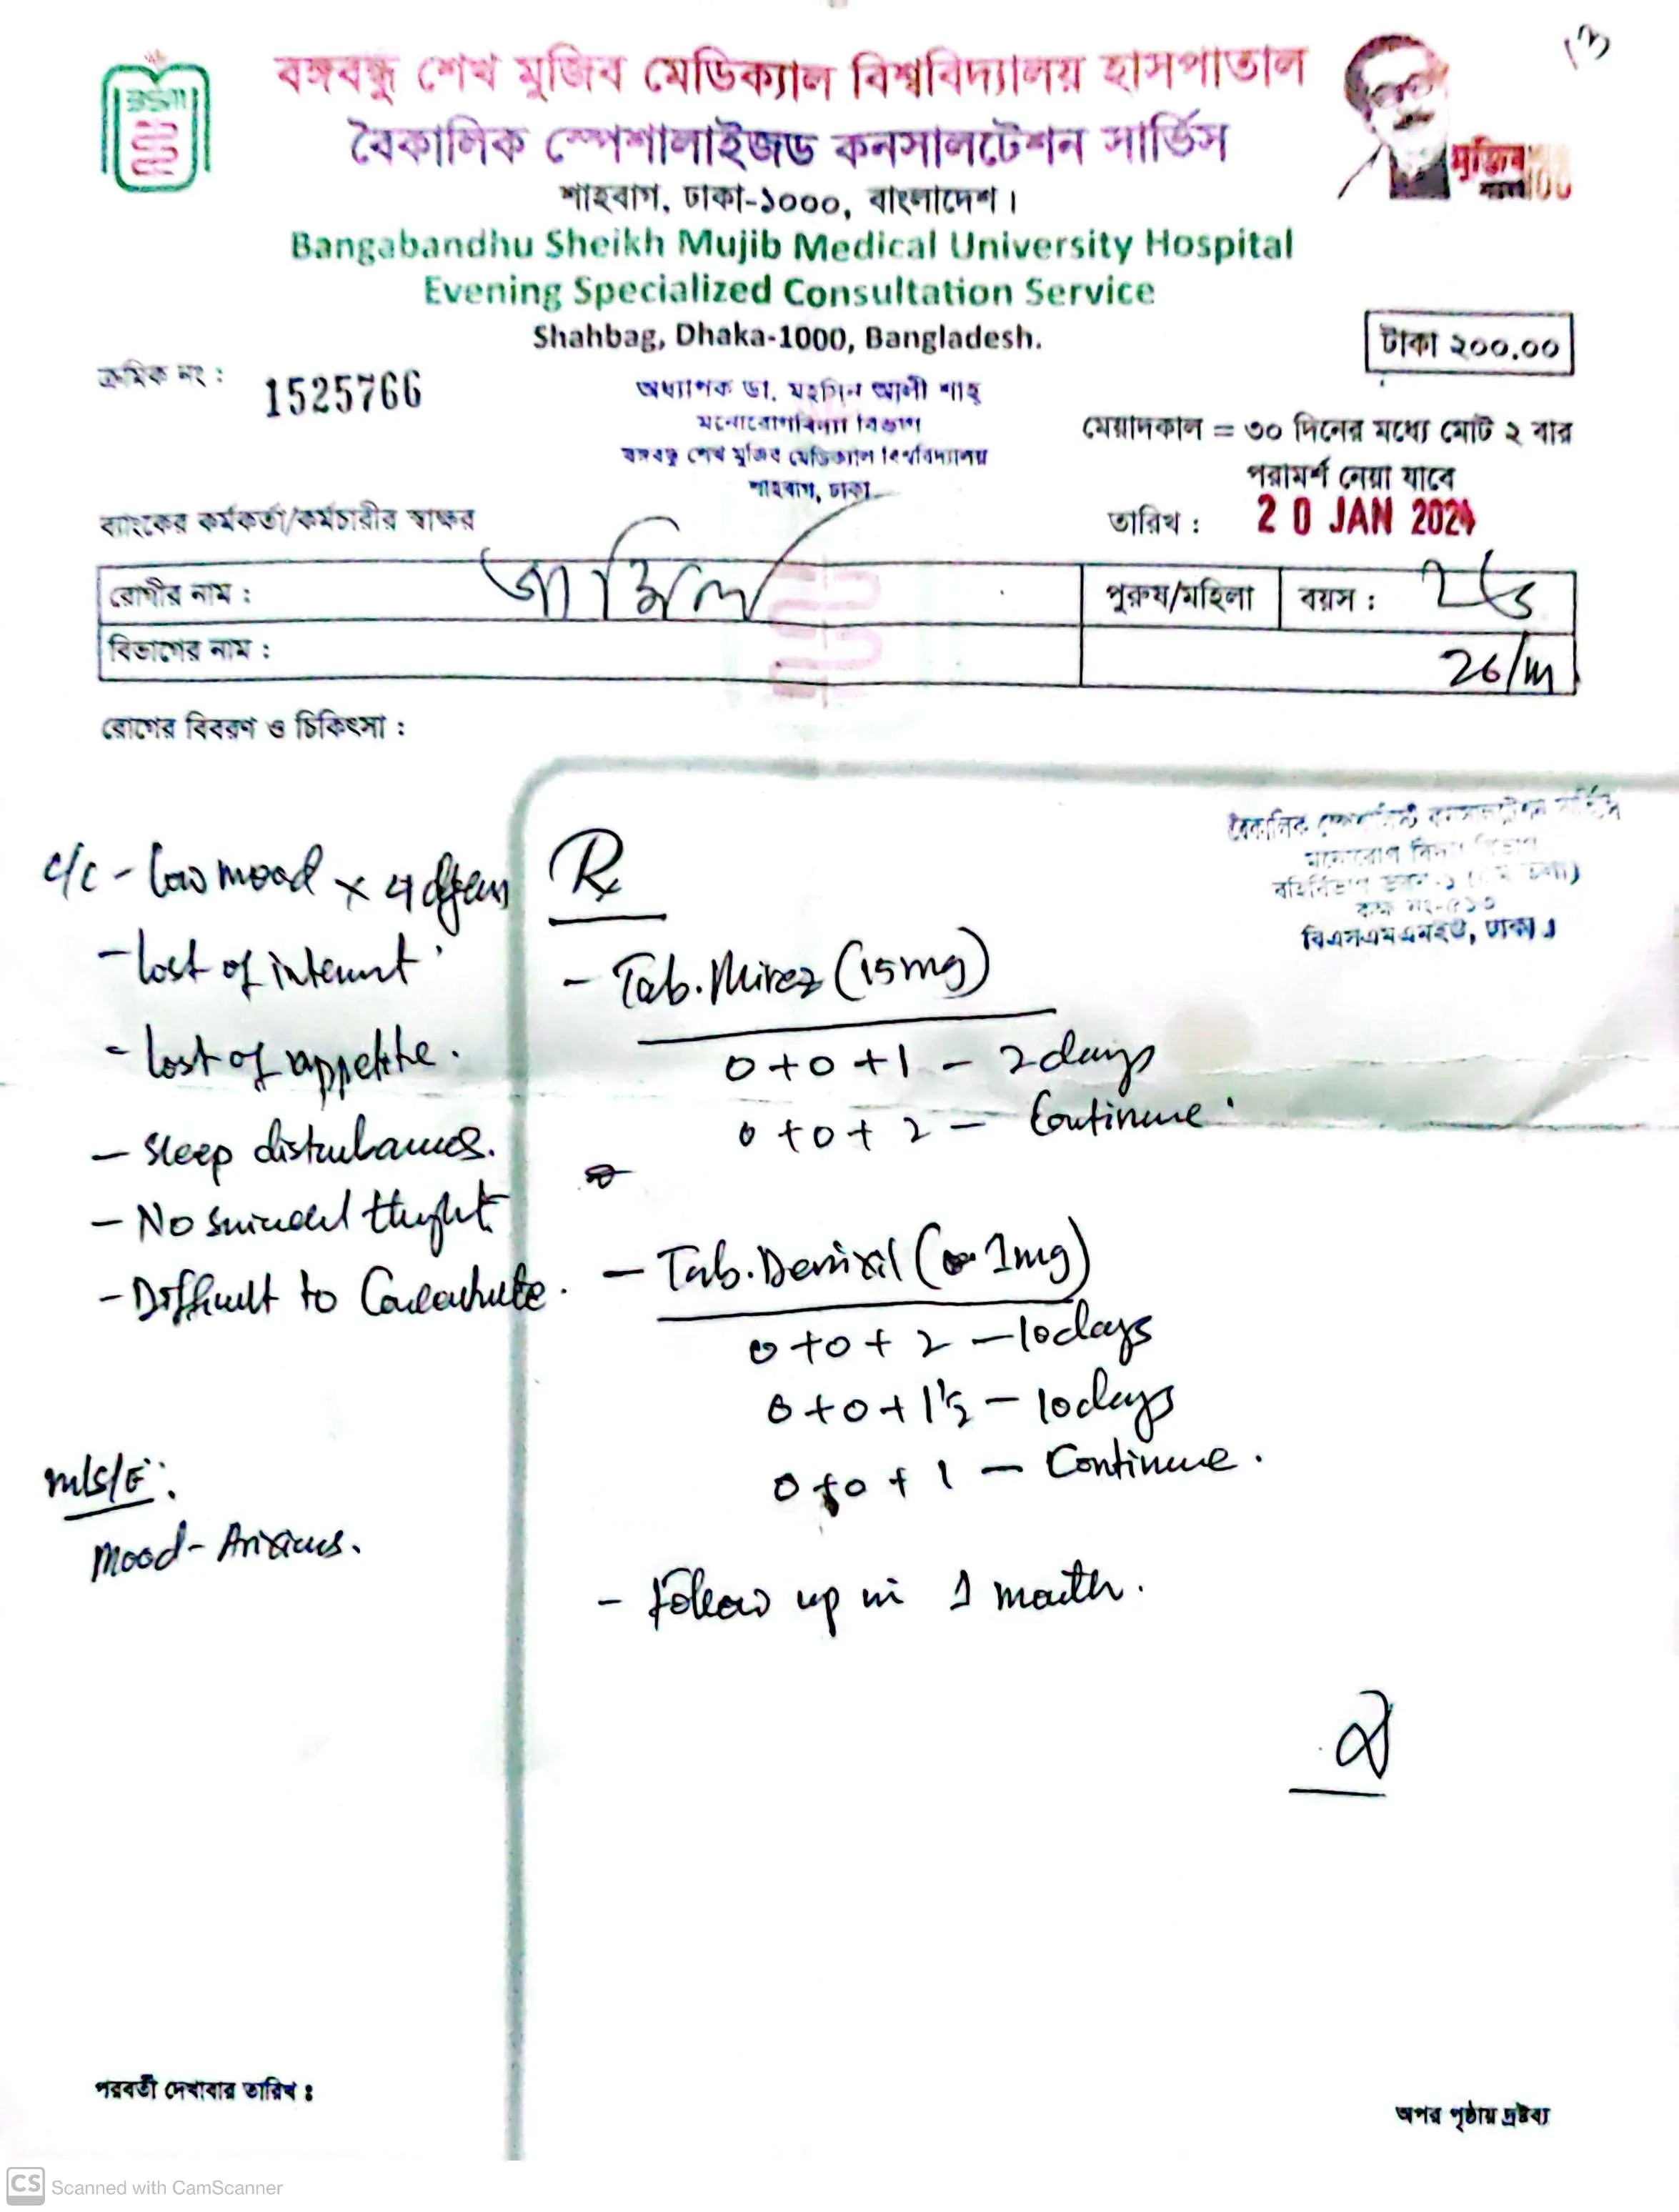 ১৩
বঙ্গবন্ধু শেখ মুজিব মেডিক্যাল বিশ্ববিদ্যালয় হাসপাতাল
বৈকালিক স্পেশালাইজড কনসালটেশন সার্ভিস
শাহবাগ, ঢাকা-১০০০, বাংলাদেশ।
Bangabandhu Sheikh Mujib Medical University Hospital
Evening Specialized Consultation Service
Shahbag, Dhaka-1000, Bangladesh.
মুজিব
টাকা ২০০.০০
ক্রমিক নং : 1525766
অধ্যাপক ডা. মহসিন আলী শাহ্
মনোরোগবিদ্যা বিভাগ
বঙ্গবন্ধু শেখ মুজিব মেডিক্যাল বিশ্ববিদ্যালয়
শাহবাগ, ঢাকা
মেয়াদকাল = ৩০ দিনের মধ্যে মোট ২ বার
পরামর্শ নেয়া যাবে
ব্যাংকের কর্মকর্তা/কর্মচারীর স্বাক্ষর
তারিখ : 20 JAN 2024
রোগীর নাম :
পুরুষ/মহিলা
বয়স : ২৬
বিভাগের নাম :
26/m
রোগের বিবরণ ও চিকিৎসা :
বৈকালিক কনসালটেশন সার্ভিস
মনোরোগ বিদ্যা বিভাগ
বিএসএমএমইউ, ঢাকা।
c/c - low mood x 4
- lost of interest
- lost of appetite.
- Sleep disturbances.
- No suicidal thught
- Difficult to
m/s/E:
mood - Anxious.
Rx
- Tab. Mirez (15mg)
0+0+1 - 2 days
0+0+2 - Continue
- Tab. Denixil (1mg)
0+0+2 - 10 days
0+0+1½ - 10 days
0+0+1 - Continue.
- Follow up in 1 month.
পরবর্তী দেখাবার তারিখ :
অপর পৃষ্ঠায় দ্রষ্টব্য
CS Scanned with CamScanner